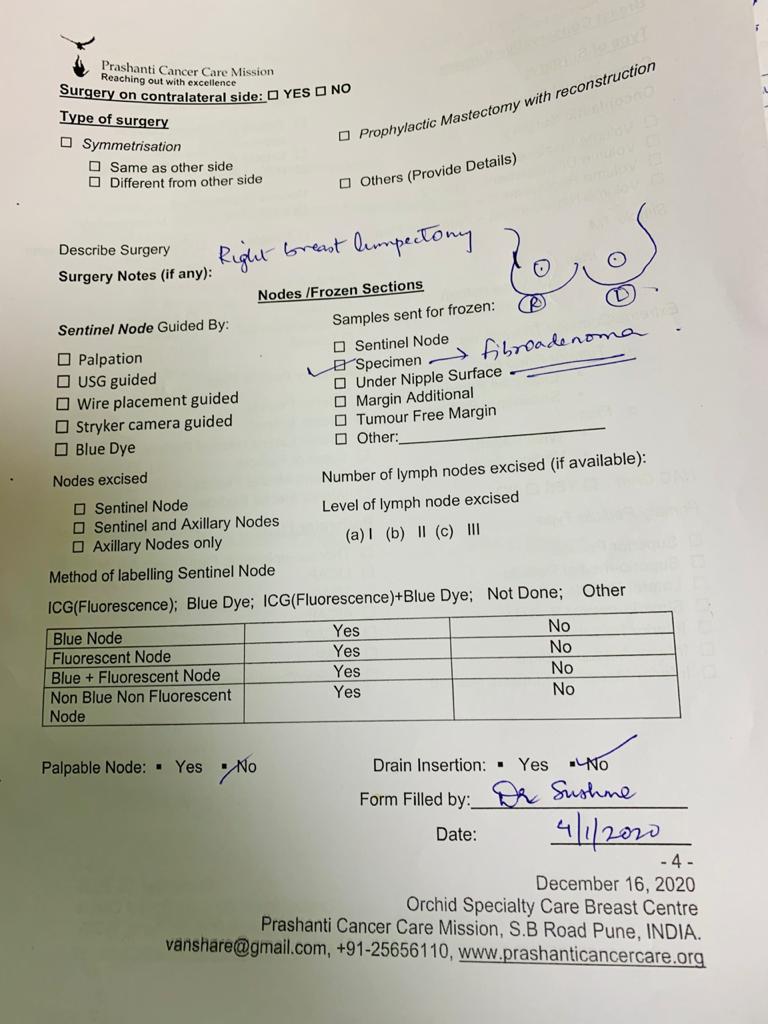 Prashanti Cancer Care Mission
Reaching out with excellence
Surgery on contralateral side: ☐ YES ☐ NO
Type of surgery
☐ Symmetrisation
☐ Prophylactic Mastectomy with reconstruction
☐ Same as other side
☐ Different from other side
☐ Others (Provide Details)
Describe Surgery Right breast lumpectomy
Surgery Notes (if any):
R L
Nodes /Frozen Sections
Sentinel Node Guided By:
☐ Palpation
☐ USG guided
☐ Wire placement guided
☐ Stryker camera guided
☐ Blue Dye
Samples sent for frozen:
☐ Sentinel Node
☑ Specimen → fibroadenoma
☐ Under Nipple Surface
☐ Margin Additional
☐ Tumour Free Margin
☐ Other:
Nodes excised
☐ Sentinel Node
☐ Sentinel and Axillary Nodes
☐ Axillary Nodes only
Number of lymph nodes excised (if available):
Level of lymph node excised
(a) I (b) II (c) III
Method of labelling Sentinel Node
ICG(Fluorescence); Blue Dye; ICG(Fluorescence)+Blue Dye; Not Done; Other
Blue Node Yes No
Fluorescent Node Yes No
Blue + Fluorescent Node Yes No
Non Blue Non Fluorescent Yes No
Node
Palpable Node: ▪ Yes ▪ No
Drain Insertion: ▪ Yes ▪ No
Form Filled by: Dr Sushme
Date: 4/1/2020
- 4 -
December 16, 2020
Orchid Specialty Care Breast Centre
Prashanti Cancer Care Mission, S.B Road Pune, INDIA.
vanshare@gmail.com, +91-25656110, www.prashanticancercare.org